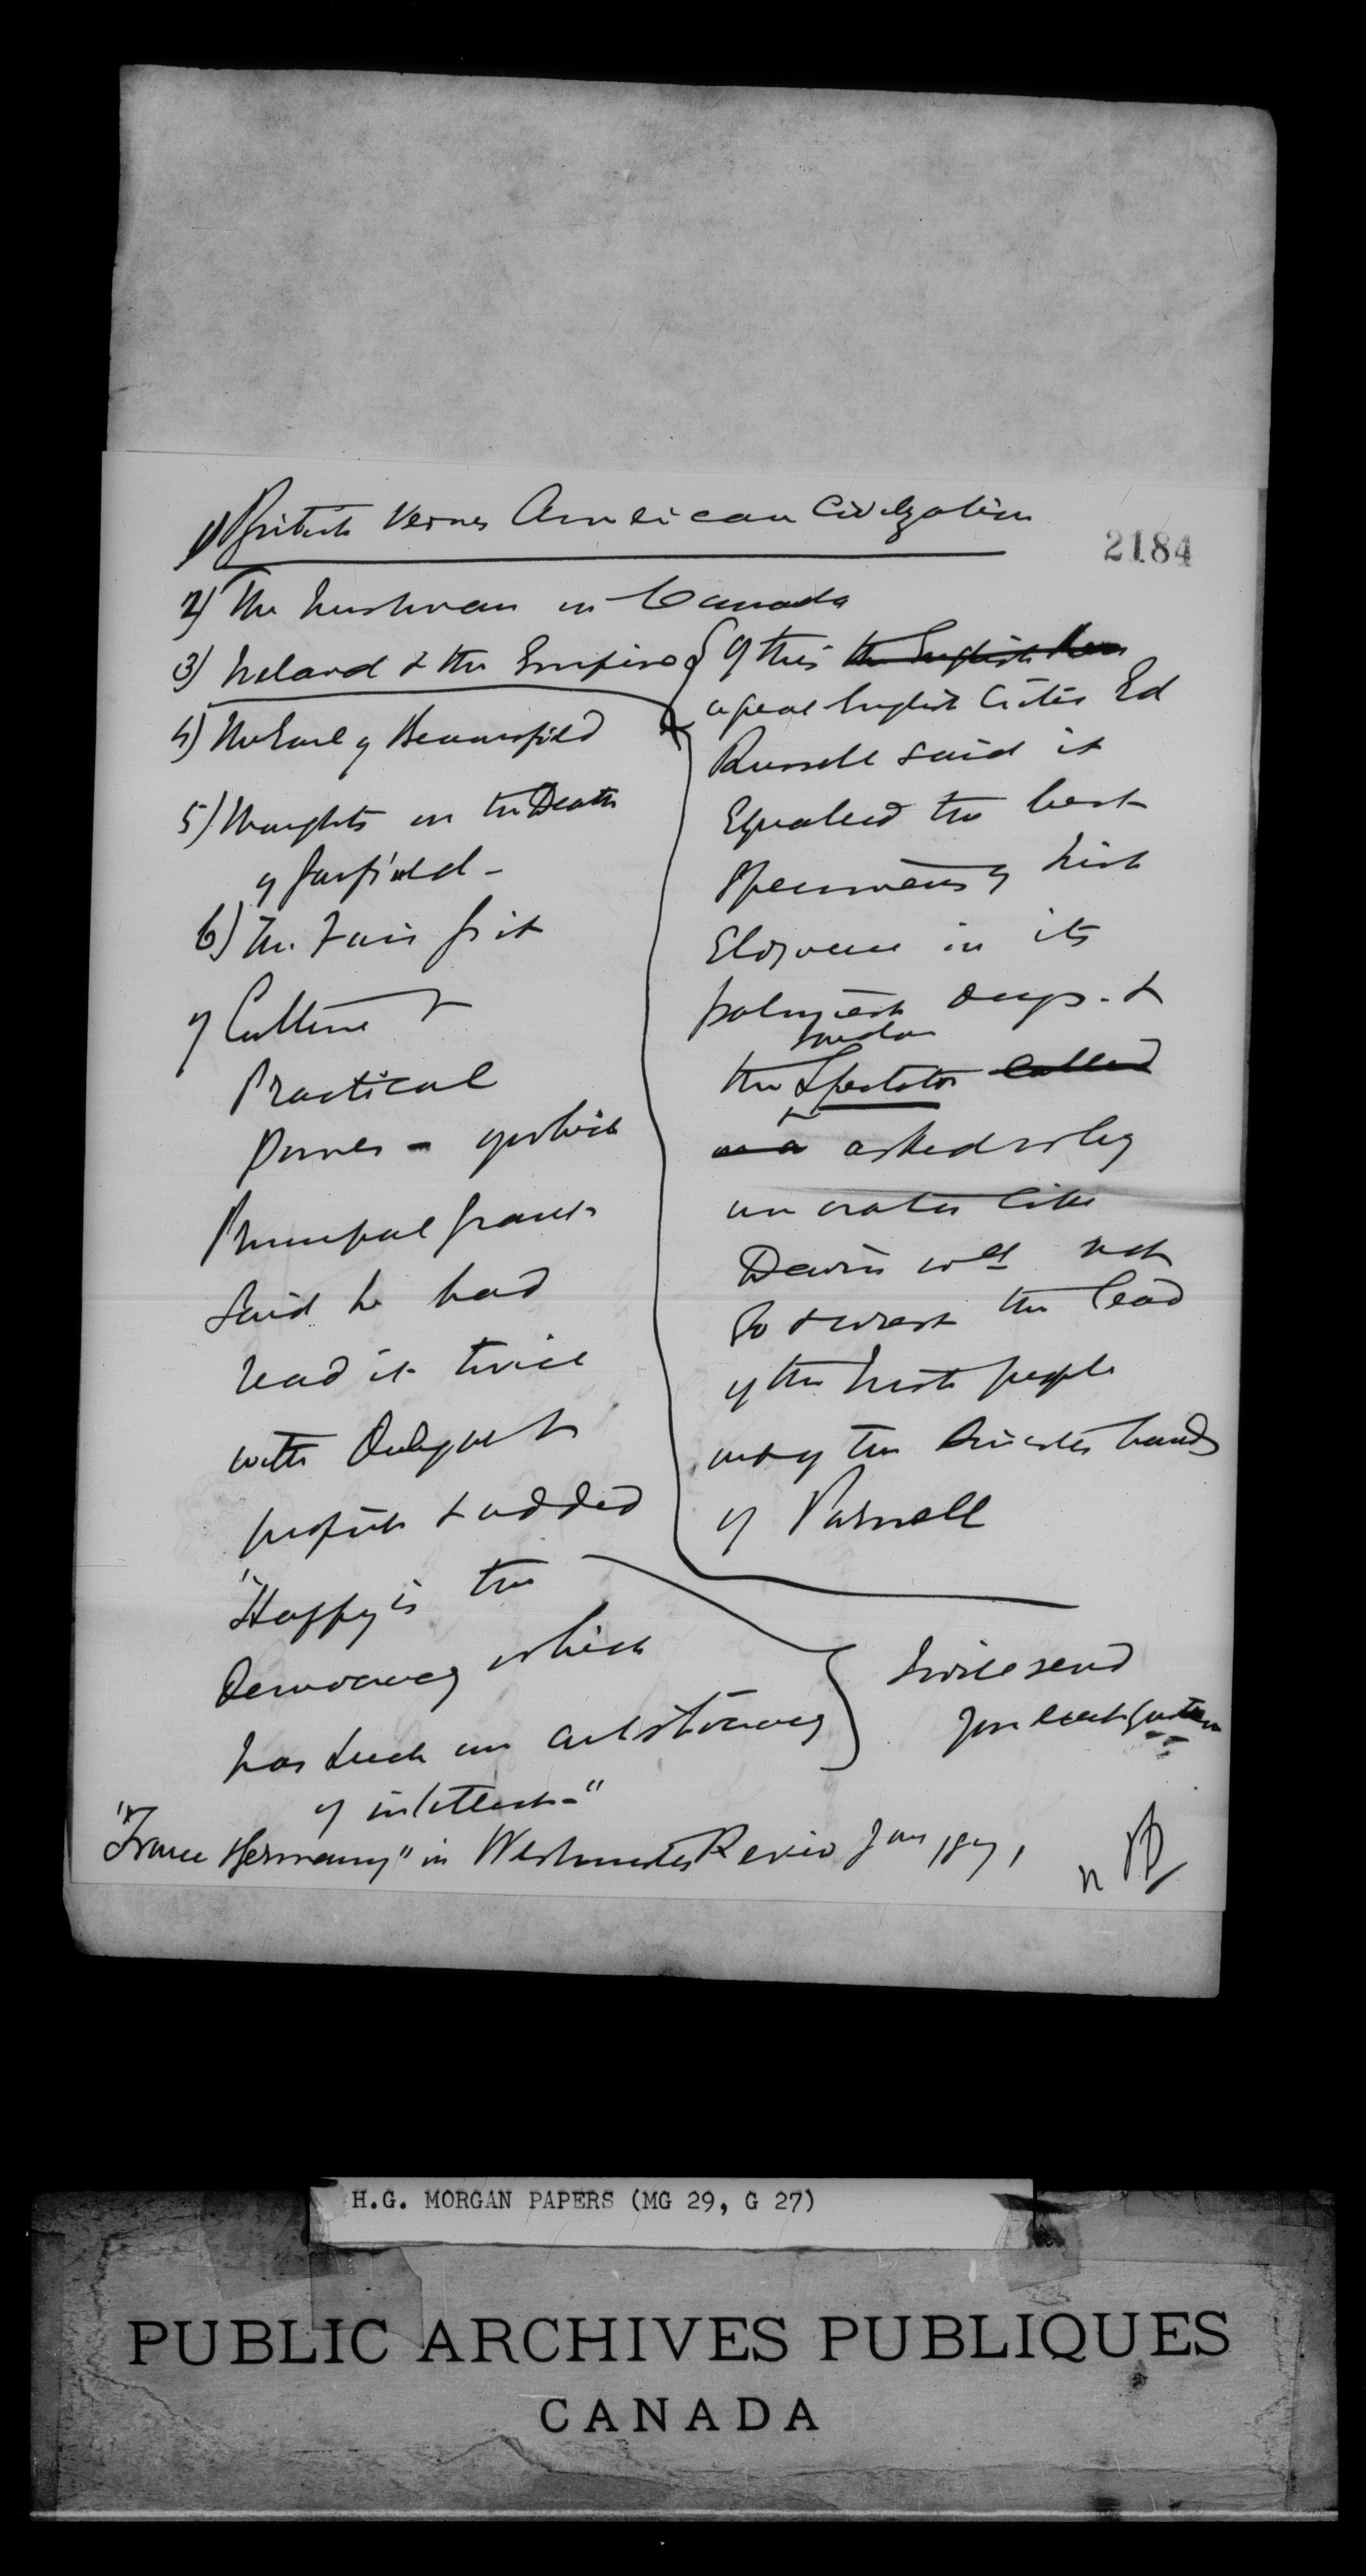 1) British versus American Civilization
2184
2) The Irishman in Canada
3) Ireland & the Empire
4) The Earl of Beaconsfield
5) Thoughts on the Death
of Garfield -
6) The Fair
of Culture &
Practical
Power - of which
Principal Grant
said he had
read it twice
with delight &
profit & added
"Happy is the
Democracy which
has such an aristocracy
of intellect-"
Of this the English
a great English Critic Ed
Russell said it
Equalled the best
specimens of Irish
Eloquence in its
palmiest days - &
London
the Spectator called
asked why
an orator like
Davin wd not
go & wrest the lead
of the Irish people
out of the hands
of Parnell
I will send
you
"France & Germany" in Westminster Review Jany 187
H.G. MORGAN PAPERS (MG 29, G 27)
PUBLIC ARCHIVES PUBLIQUES
CANADA